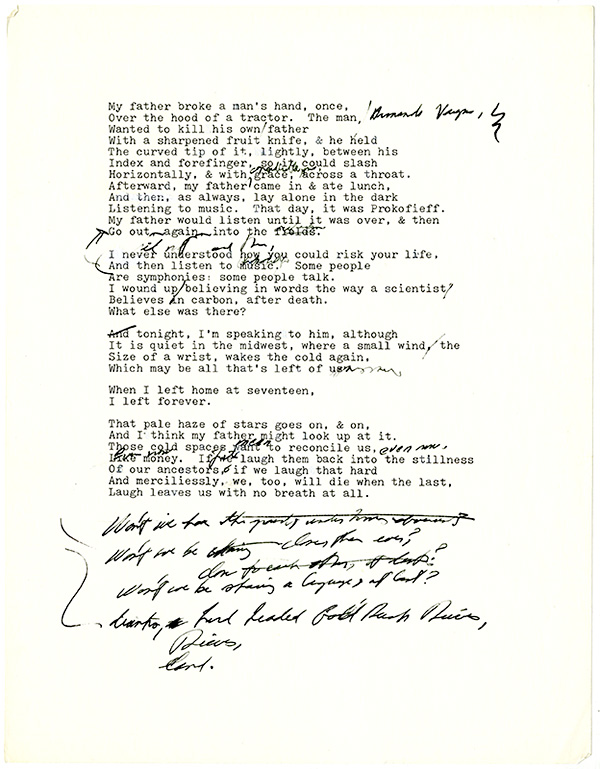 My father broke a man's hand, once,
Over the hood of a tractor. The man, Armando Vargas,
Wanted to kill his own father
With a sharpened fruit knife, & he held
The curved tip of it, lightly, between his
Index and forefinger, so it could slash
Horizontally, & with grace, across a throat.
Afterward, my father came in & ate lunch,
And then, as always, lay alone in the dark
Listening to music. That day, it was Prokofieff.
My father would listen until it was over, & then
Go out again into the fields.
I never understood how you could risk your life,
And then listen to music. Some people
Are symphonies: some people talk.
I wound up believing in words the way a scientist
Believes in carbon, after death.
What else was there?
And tonight, I'm speaking to him, although
It is quiet in the midwest, where a small wind, the
Size of a wrist, wakes the cold again,
Which may be all that's left of us
When I left home at seventeen,
I left forever.
That pale haze of stars goes on, & on,
And I think my father might look up at it.
mean
Those cold spaces want to reconcile us, even now.
Like money. If we laugh them back into the stillness
Of our ancestors, if we laugh that hard
And mercilessly, we, too, will die when the last,
Laugh leaves us with no breath at all.
Won't we
Won't we be closer than ever?
close to each other, at last?
Won't we be sharing a language, at last?